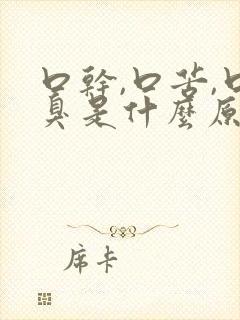 口幹,口苦,口
真是什麼原
席卡